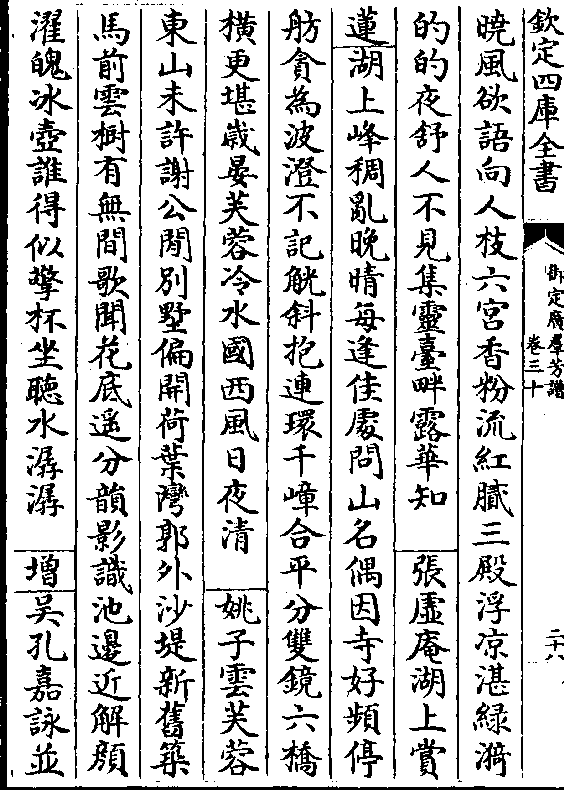 欽定四庫全書
御定廣羣芳譜
卷三十
二十八
曉風欲語向人枝六宮香粉流紅膩三殿浮凉湛綠漪
的的夜舒人不見集靈臺畔露華知 張虛庵湖上賞
蓮湖上峰稠亂晚晴每逢佳處問山名偶因寺好頻停
舫貪為波澄不記觥斜抱連環千嶂合平分雙鏡六橋
橫更堪歲晏芙蓉冷水國西風日夜清 姚子雲芙蓉
東山未許謝公閒別墅偏開荷葉灣郭外沙堤新舊築
馬前雲樹有無間歌聞花底遥分韻影識池邊近解顔
濯魄冰壺誰得似擎杯坐聽水潺潺 增吳孔嘉詠並